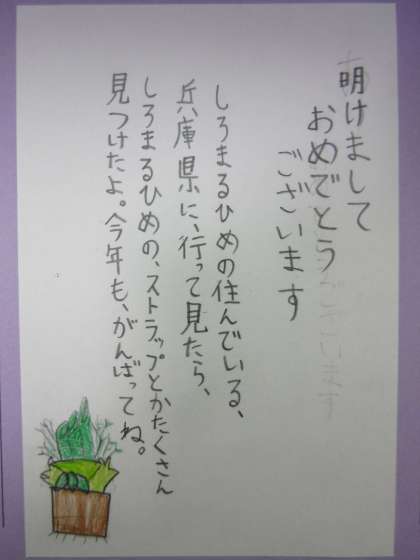 明けまして
おめでとう
ございます
しろまるひめの住んでいる、
兵庫県に、行って見たら、
しろまるひめの、ストラップとかたくさん
見つけたよ。今年も、がんばってね。